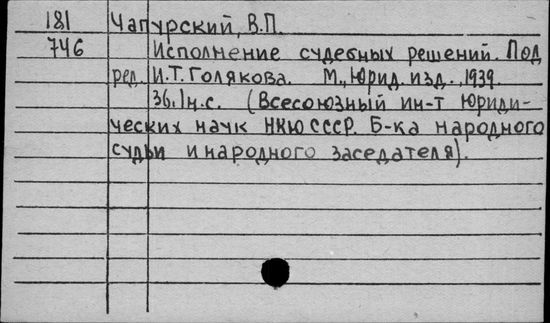 181 Чапурский, В.П.
746 Исполнение судебных решений. Под
ред. И.Т. Голякова. М., Юрид. изд., 1939
36, 1н.с. (Всесоюзный ин-т юриди-
ческих наук НКЮ СССР. Б-ка народного
судьи и народного заседателя).